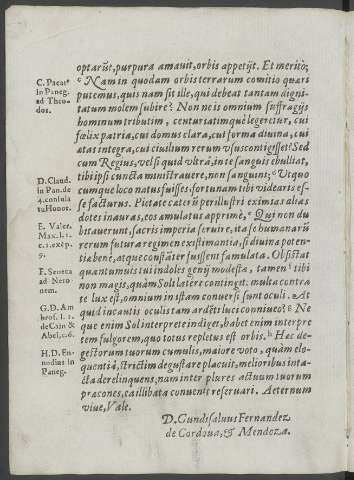 optarūt, purpura amauit, orbis appetijt. Et meritò;
C. Pacat⁹ in Paneg. ad Theodos.
ᶜ Nam in quodam orbis terrarum comitio quæri
putemus, quis nam sit ille, qui debeat tantam digni-
tatum molem subire? Non ne is omnium suffragijs
hominum tributim, centuriatimquè legeretur, cui
fœlix patria, cui domus clara, cui forma diuina, cui
ætas integra, cui ciuilium rerum vsus contigisset? Sed
cum Regius, vel si quid vltrà, in te sanguis ebulliat,
D. Claud. in Pan. de 4. consula tu Honor.
tibi ipsi cuncta ministrauere, non sanguini; ᵈ Vt quo
cumque loco natus fuisses, fortunam tibi videaris es-
se facturus. Pietate cæterùm perillustri eximias alias
dotes inauras, eos æmulatus apprimè, ᵉ Qui non du
E. Valer. Max. l. 1. c. 1. exép. 9.
bitauerunt, sacris imperia seruire, ita se humanarū
rerum futura regimen existimantia, si diuinæ poten-
tiæ bené, atque constāter fuissent famulata. Obsistat
F. Seneca ad Neronem.
quantumuis tui indoles genij modesta, tamen ᶠ tibi
non magis, quàm Soli latere contingit. multa contra
te lux est, omnium in istam conuersi sunt oculi. At
G. D. Ambros. l. 1. de Cain & Abel, c. 6.
quid incautis oculis tam ardēti luci conniueo? ᵍ Ne
que enim Sol interprete indiget, habet enim interpre
tem fulgorem, quo totus repletus est orbis. ʰ Hæc de-
H. D. Ennodius in Paneg.
gestorum tuorum cumulis, maiore voto, quàm elo-
quentiâ, strictim degustare placuit, melioribus inta-
cta derelinquens, nam inter plures actuum tuorum
præcones, ea illibata conuenit reseruari. Aeternum
viue, Vale.
D. Gundisaluus Fernandez
de Cordoua, & Mendoza.